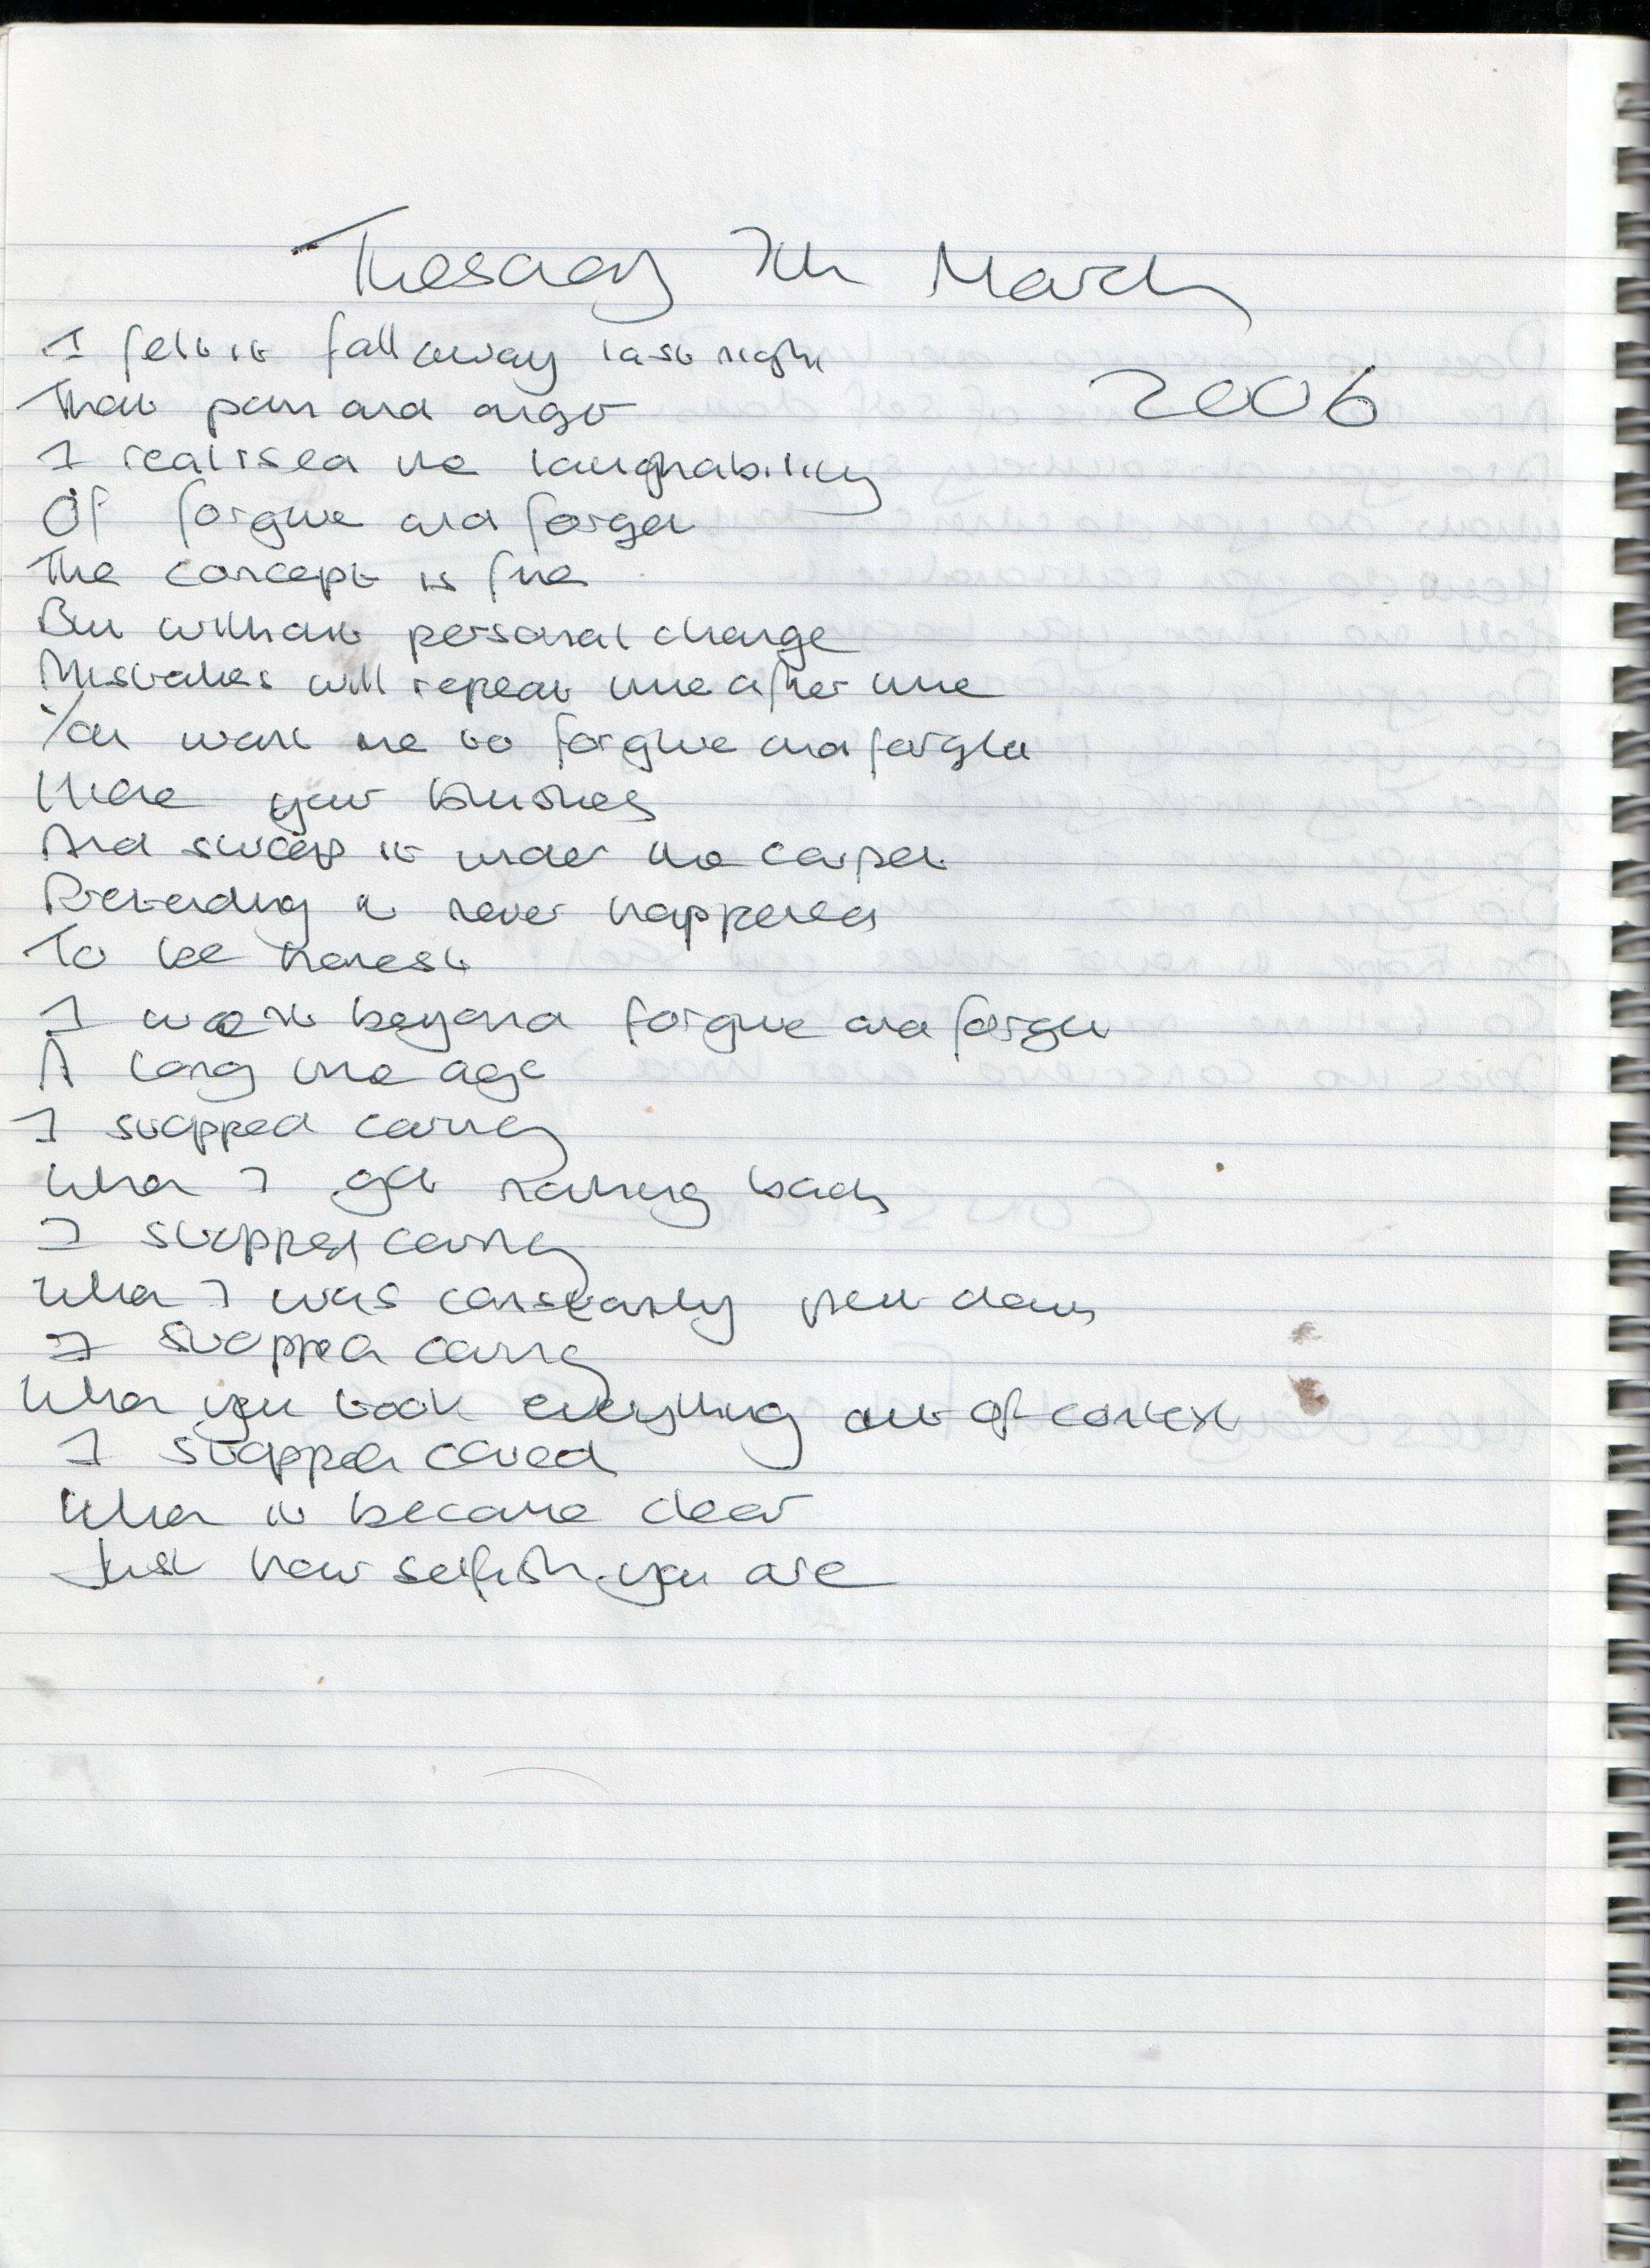 Tuesday 7th March
2006
I felt it fall away last night
That pain and anger
I realised the laughability
Of forgive and forget
The concept is fine
But without personal change
Mistakes will repeat time after time
You want me to forgive and forget
Use your brushes
And sweep it under the carpet
Pretending it never happened
To be honest
I went beyond forgive and forget
A long time ago
I stopped caring
When I got nothing back
I stopped caring
When I was constantly put down
I stopped caring
When you took everything out of context
I stopped cared
When it became clear
Just how selfish you are